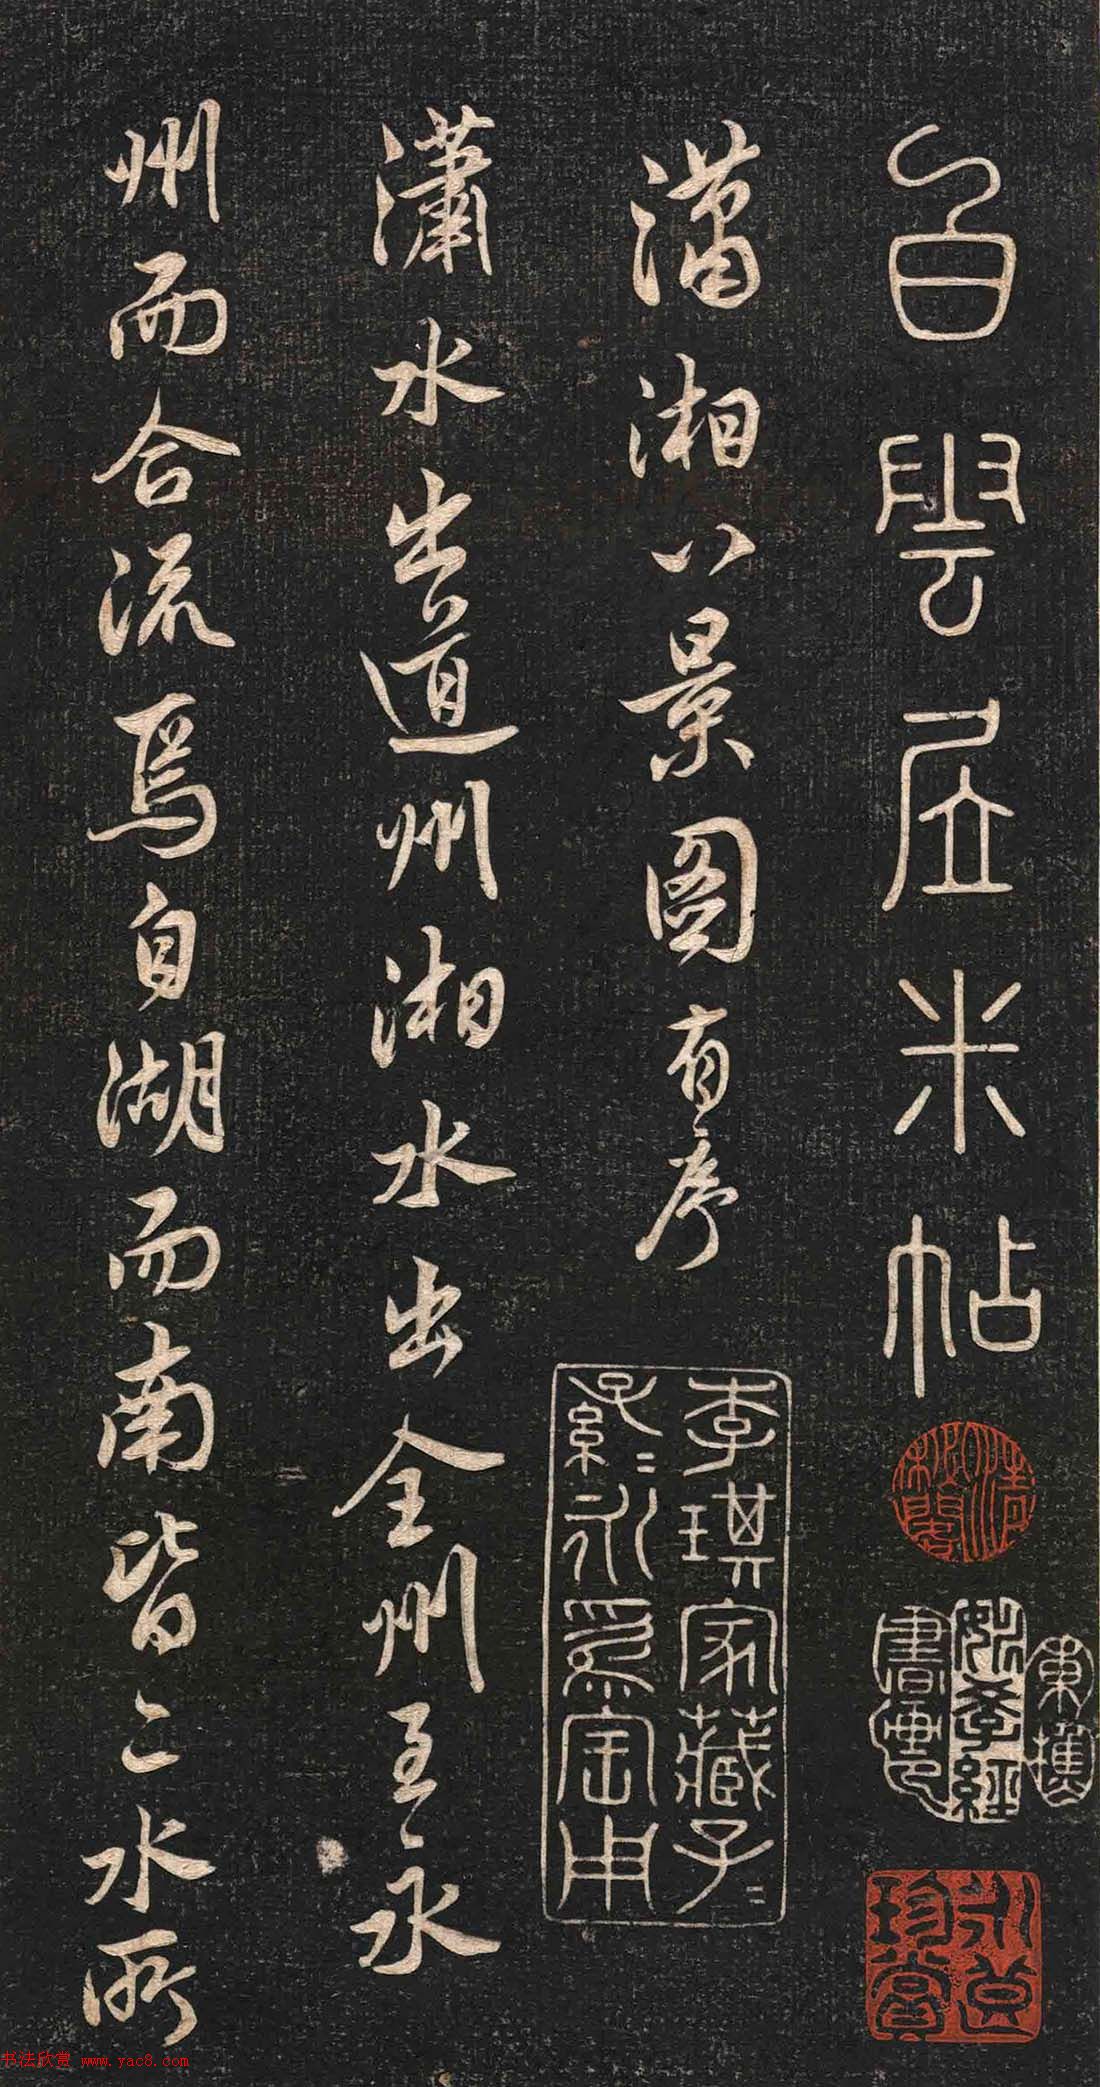 白雲居米帖
瀟湘八景圖有序
瀟水出道州湘水出全州至永
州而合流焉自湖而南皆二水所
李琪家藏子〻
孫〻永爲寶用
書法欣賞 www.yac8.com